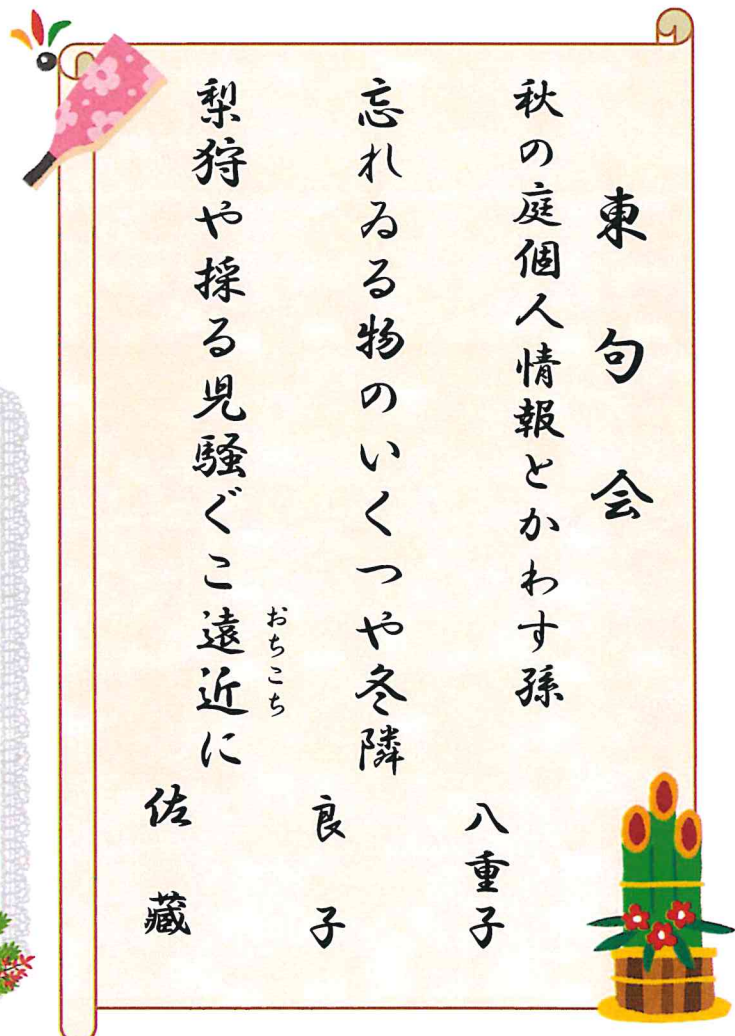 東句会
秋の庭個人情報とかわす孫
八重子
忘れゐる物のいくつや冬隣
良子
梨狩や採る児騒ぐこ遠近に
おちこち
佐藏